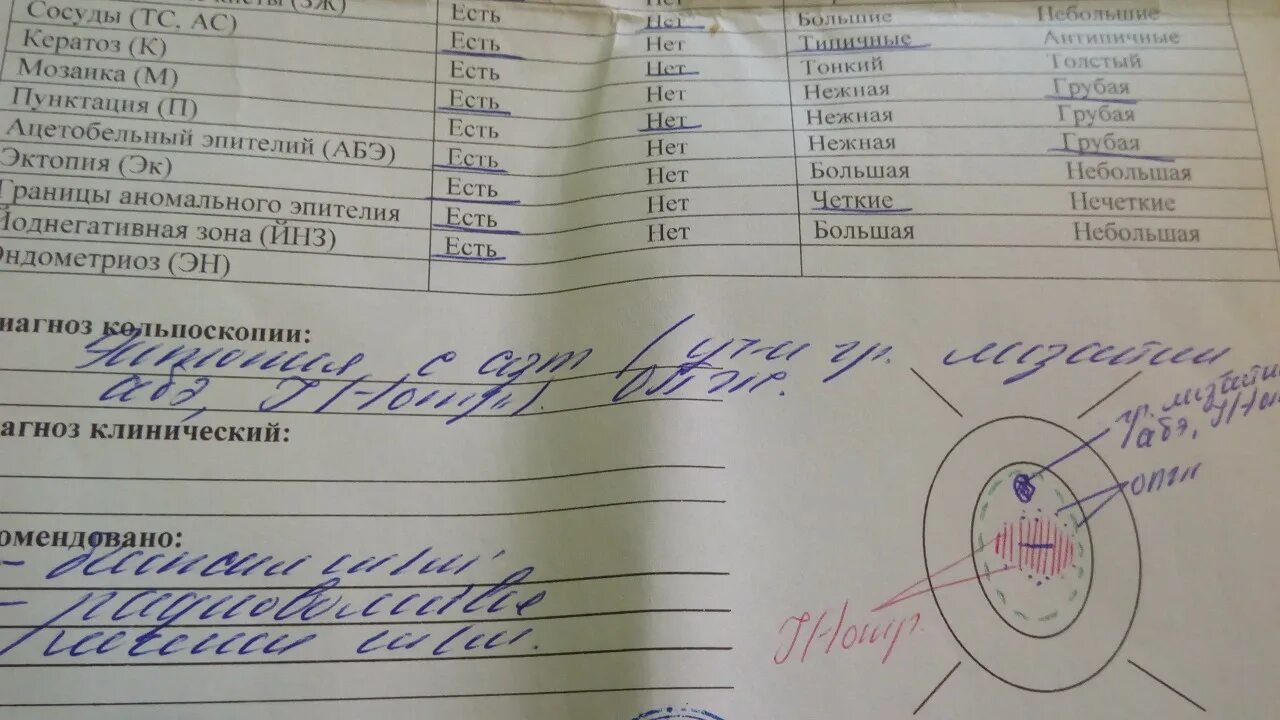 (ЗЖ) Нет
Сосуды (ТС, АС) Есть Нет Большие Небольшие
Кератоз (К) Есть Нет Типичные Антипичные
Мозаика (М) Есть Нет Тонкий Толстый
Пунктация (П) Есть Нет Нежная Грубая
Ацетобельный эпителий (АБЭ) Есть Нет Нежная Грубая
Эктопия (Эк) Есть Нет Нежная Грубая
Границы аномального эпителия Есть Нет Большая Небольшая
Йоднегативная зона (ЙНЗ) Есть Нет Четкие Нечеткие
Эндометриоз (ЭН) Есть Нет Большая Небольшая
иагноз кольпоскопии:
Эктопия с азт (уч-и гр. мозаики
абэ, J(-)отр.)
агноз клинический:
гр. мозаики
абэ, J(-)
опж
омендовано:
- биопсия ш/м
- радиоволновое
лечение ш/м.
J(-)отр.